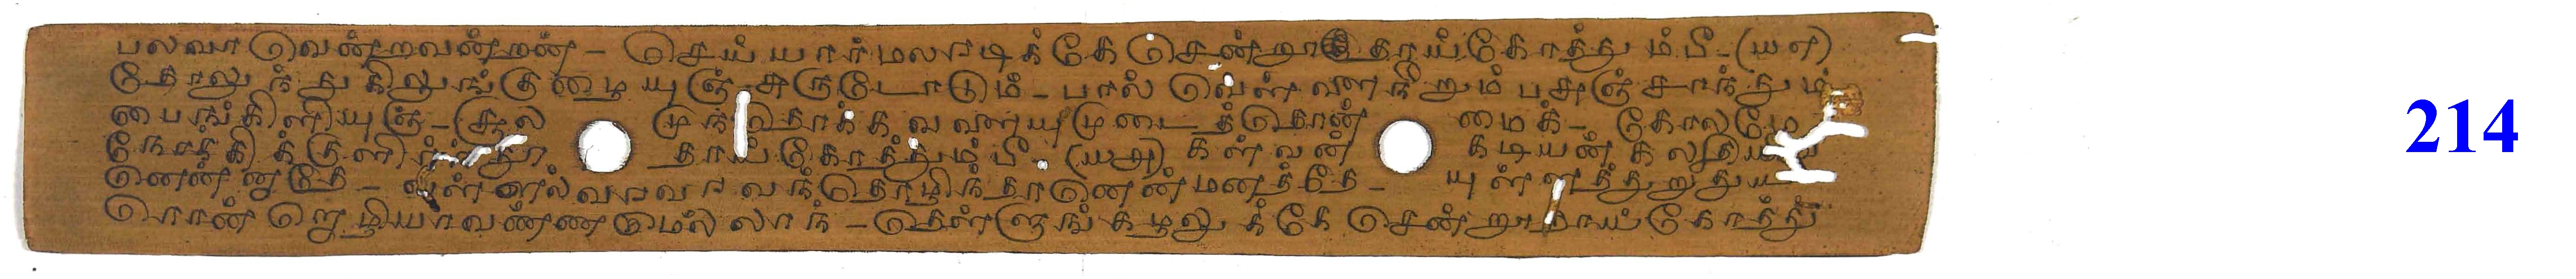 பலவா வென்றவன்றன் - செய்யார்மலரடிக்கே சென்றூதாய்கோத்தும்பீ - (யஎ)
தோலுந்துகிலுங்குழையுஞ்சுருடோடும் - பால்வெள்ளைநீறும்பசுஞ்சாந்தும்
பைங்கிளியுஞ் - சூல முந்தொக்கவளையுமுடைத்தொன் மைக் - கோலமே
நோக்கிக்குளிர்ந்தூ தாய்கோத்தும்பீ - (யஅ) கள்வன் கடியன்கலதியிவ
னென்னாதே - வள்ளல்வரவரவந்தொழிந்தானென்மனத்தே - யுள்ளத்துறுதுய
ரொன்றொழியாவண்ணமெல்லாந் - தெள்ளுங்கழலுக்கே சென்றூதாய்கோத்து
214